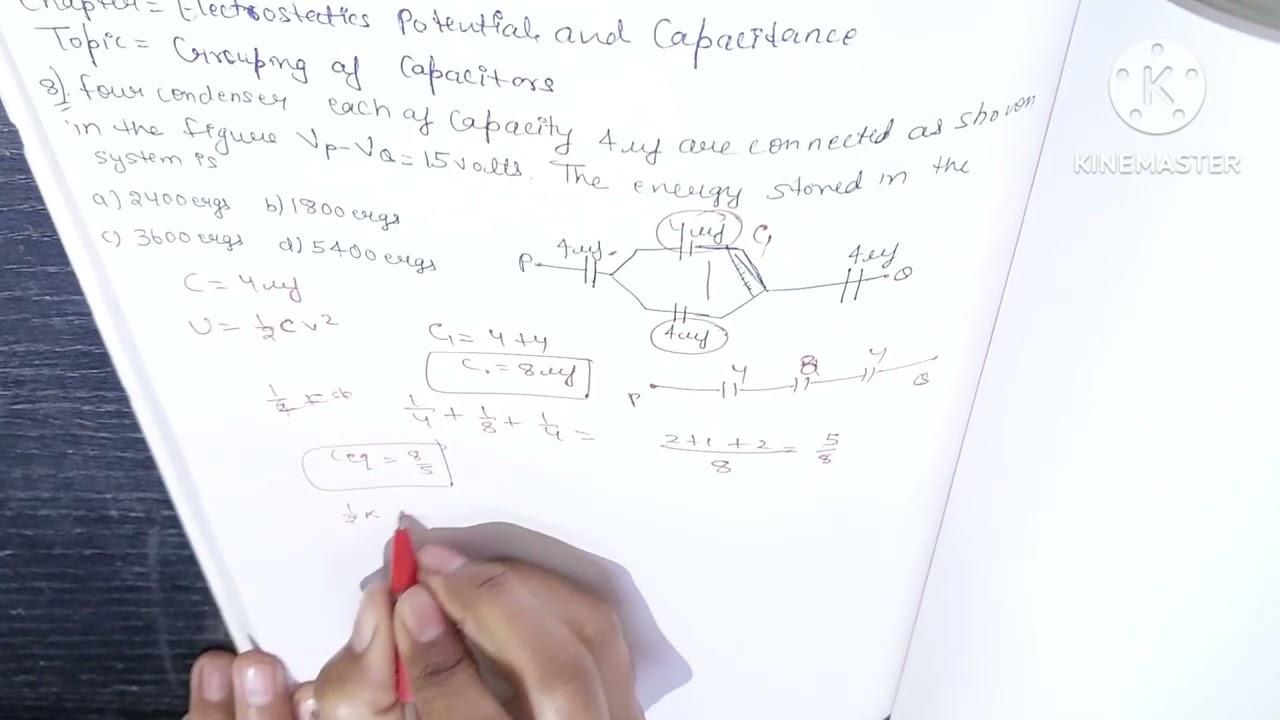 Chapter = Electrostectics Potential and Capacitance
Topic = Grouping of Capacitors
8). four condenser each of Capacity 4uf are connected as shown
in the figure Vp-VQ = 15 volts. The energy stored in the
system is
a) 2400 ergs b) 1800 ergs
c) 3600 ergs d) 5400 ergs
4uf C1
P 4uf 4uf Q
4uf
C = 4uf
U = 1/2 C V2
C1 = 4+4
C1 = 8uf
P 4 8 4 Q
1/4 + 1/8 + 1/4 = 2+1+2/8 = 5/8
Ceq = 8/5
1/2 x
K
KINEMASTER